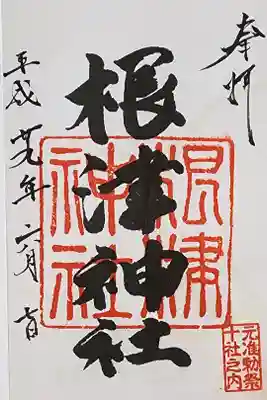 奉拝
根津神社
根津
神社
平成廿九年六月七日
元准勅祭
十社之内